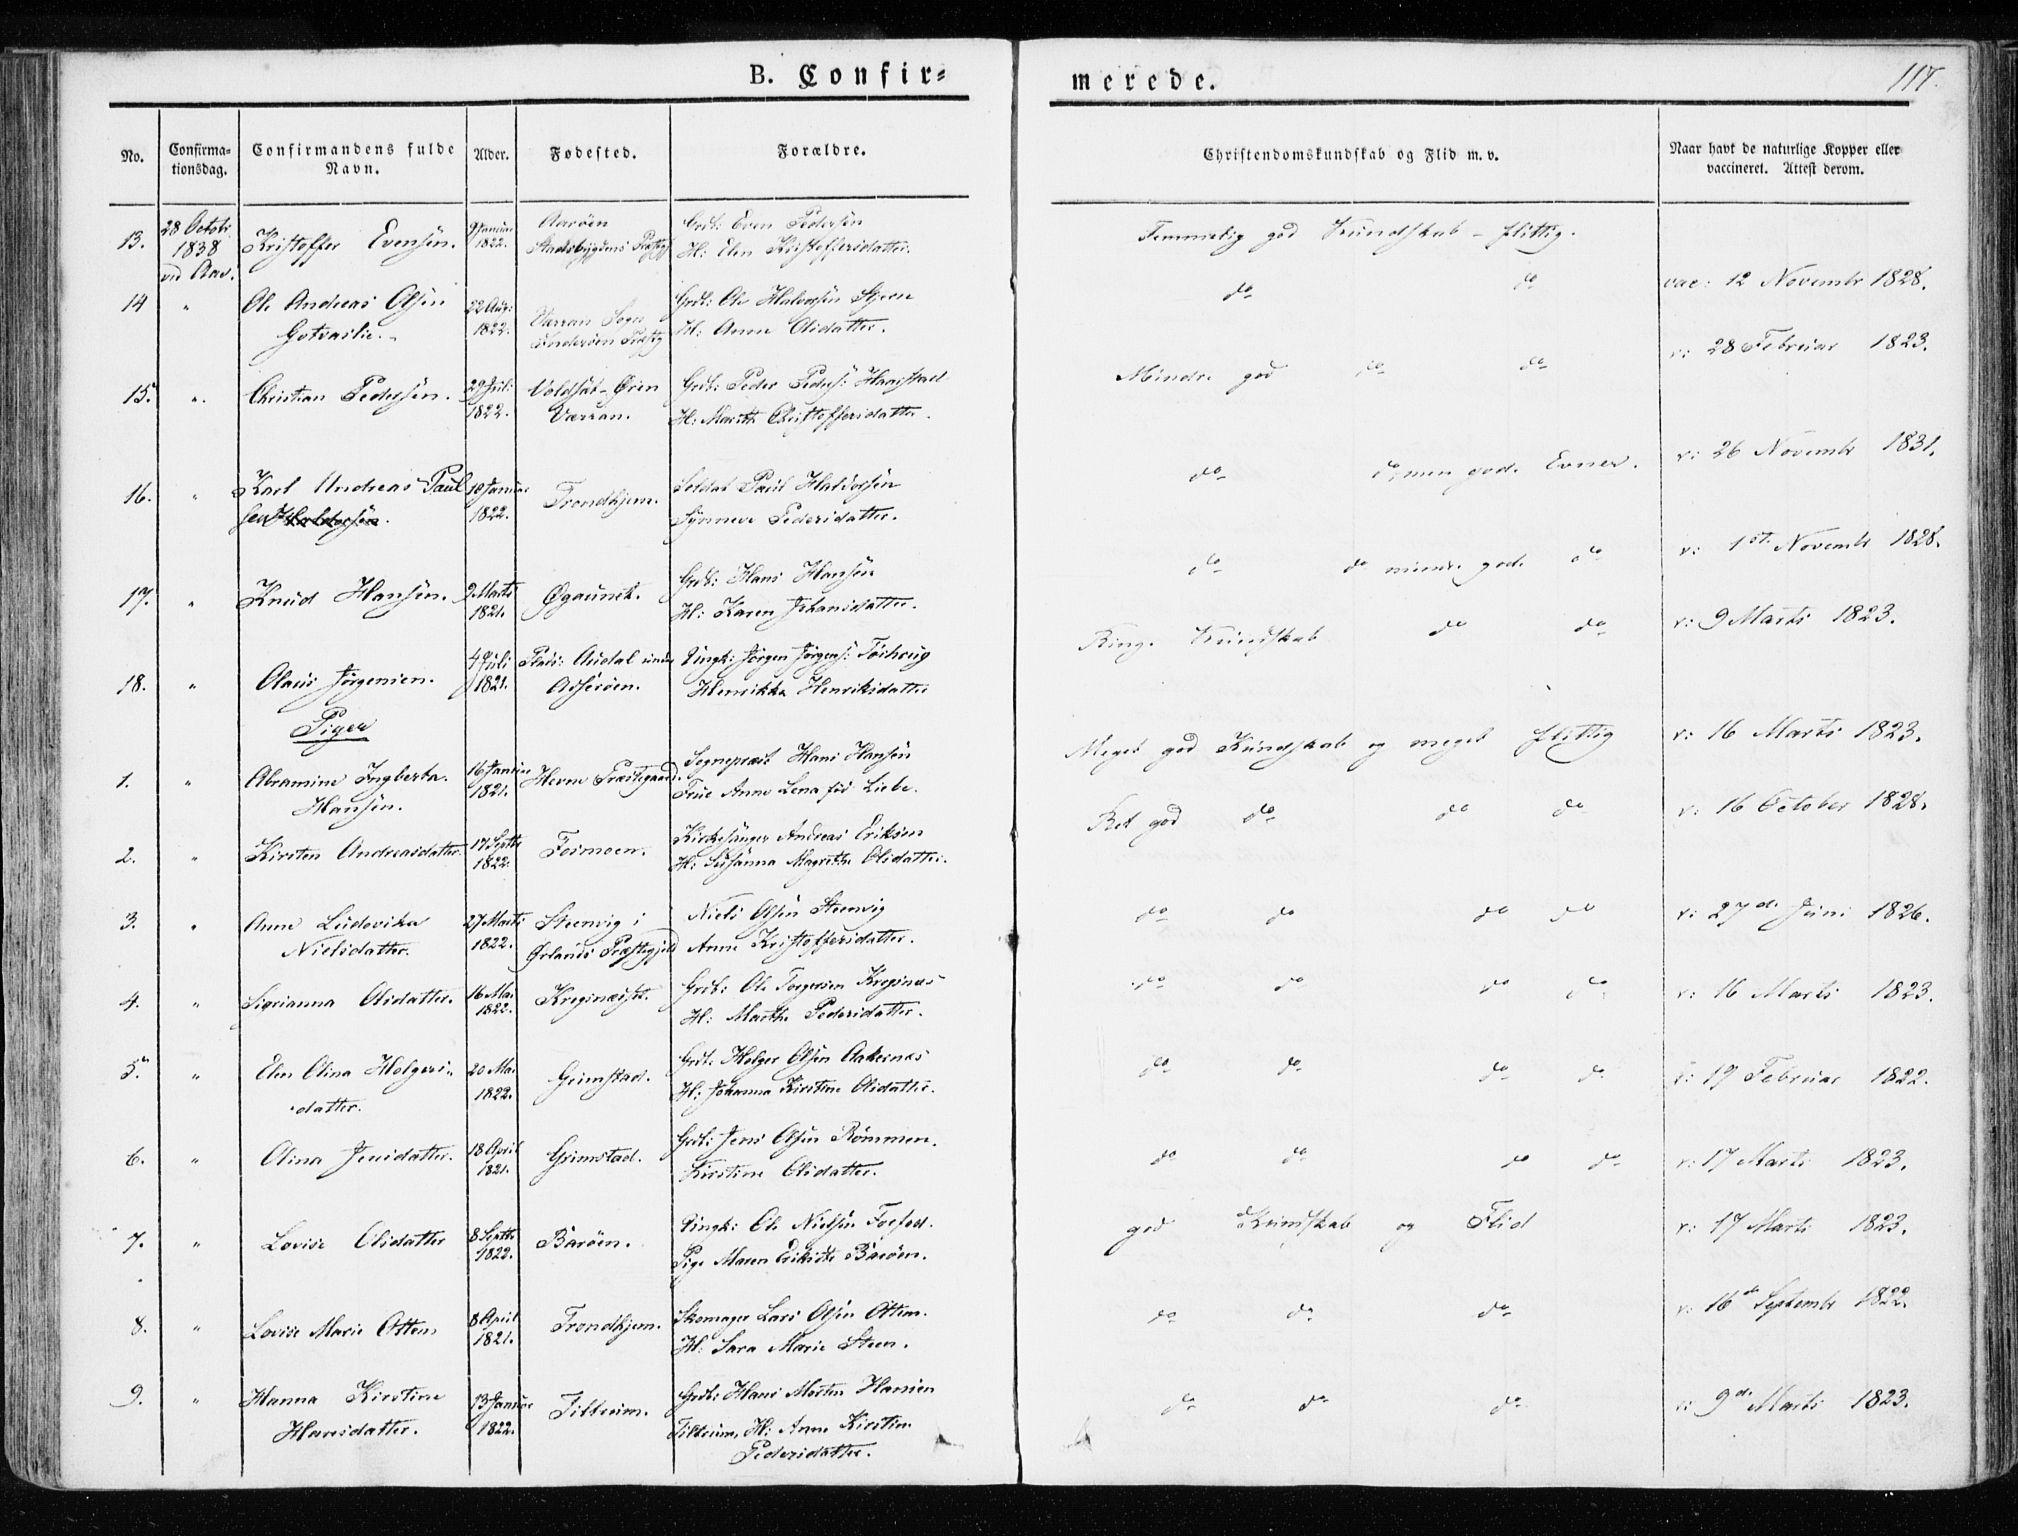 B. Confir=
merede.
117.
No.
Confirma=
tionsdag.
Confirmandens fulde
Navn.
Alder.
Fødested.
Forældre.
Christendomskundskab og Flid m. v.
Naar havt de naturlige Kopper eller
vaccineret. Attest derom.
13.
28 Octobr
1838
ved Aae.
Kristoffer Evensen.
9 Januar
1822.
Aarøen
Stadsbygdens Præstgj
Grdb: Even Pedersen
H: Elen Kristoffersdatter.
Temmelig god Kundskab - flittig.
vac: 12 Novembr 1828.
14
"
Ole Andreas Olsen
Gotvaslie.
22 Aug:
1822.
Værran Sogn
Inderøen Præstg
Grdb: Ole Halvorsen
H: Anne Olsdatter.
do
do
v: 28 Februar 1823.
15.
"
Christian Pedersen.
29 Juli
1822.
Voldsæt-Ørin
Værran.
Grdb: Peder Peders: Haarstad
H: Marith Christoffersdatter.
Mindre god do do
v: 26 Novembr 1831.
16.
"
Karl Andreas Paul
sen Halvorsen.
10 Januar
1822.
Trondhjem.
Soldat Paul Halvorsen
Synneve Pedersdatter.
do
do, men gode Evner.
v: 1st Novembr 1828.
17.
"
Knud Hansen.
9 Marts
1821.
Grdb: Hans Hansen
H: Karen Johansdatter.
do
do mindre gode do
v: 9 Marts 1823.
18.
"
Olaus Jørgensen.
4 Juli
1821.
Plads: Audal under
Adserøen.
Ungk: Jørgen Jørgens:
Henrikka Henriksdatter
Ringe Kundskab do do
Piger
1.
"
Abramine Ingberta
Hansen.
16 Januar
1821.
Hevne Præstegaard.
Sognepræst Hans Hansen
Frue Anne Lena fød Liebe.
Meget god Kundskab og meget flittig
v: 16 Marts 1823.
2.
"
Kirsten Andreasdatter
17 Septbr
1822.
Kirkesanger Andreas Eriksen
H: Susanna Magrethe Olsdatter.
Ret god do do do
v: 16 October 1828.
3.
"
Anne Ludovika
Nielsdatter.
27 Marts
1822.
Steenvig i
Ørlands Præstegjeld
Niels Olsen Steenvig
Anne Kristoffersdatter.
do do do do
v: 27de Juni 1826.
4.
"
Sigrianna Olsdatter.
16 Mai
1822.
Kregsnæsst.
Grdb: Ole Torgersen Kregsnæs
H: Marthe Pedersdatter.
do do do do
v: 16 Marts 1823.
5.
"
Elen Olina Holgers=
datter.
20 Mai
1822.
Grimstad.
Grdb: Holger Olsen Aakernes
H: Johanna Kirstine Olsdatter.
do do do do
v: 19 Februar 1822.
6.
"
Olina Jensdatter.
18 April
1821.
Grimstad.
Grdb: Jens Olsen Rømmen.
Kirstine Olsdatter.
do do do do
v: 17 Marts 1823.
7.
"
Lovise Olsdatter
8 Septbr
1822.
Barøen.
Ungk: Ole Nielsen
Pige Maren Eriksdtr Barøen.
god Kundskab og Flid
v: 17 Marts 1823.
8.
"
Lovise Marie Ottem
8 April
1821.
Trondhjem.
Skomager Lars Olsen Ottem.
H: Sara Marie Steen.
do do do
v: 16de Septembr 1822.
9.
"
Hanna Kirstine
Hansdatter.
13 Januar
1822.
Tiltreim.
Grdb: Hans Morten Hansen
Tiltreim, H: Anne Kirstine
Pedersdatter.
do do do
v: 9de Marts 1823.